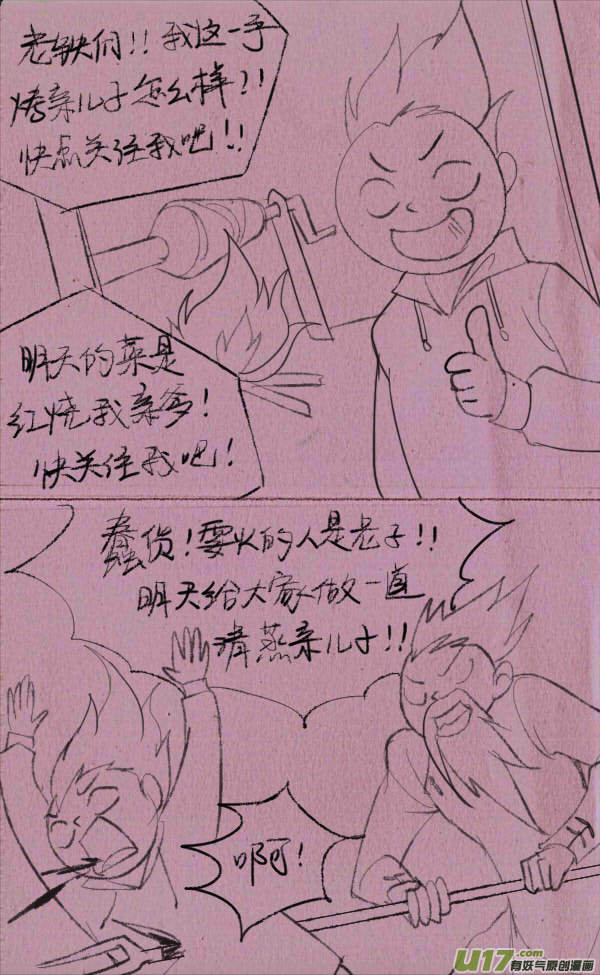 老铁们!!我这一手
烤亲儿子怎么样?!
快点关注我吧!!
明天的菜是
红烧我亲爹!
快关注我吧!
蠢货!要火的人是老子!!
明天给大家做一道
清蒸亲儿子!!
啊!
U17.com
有妖气原创漫画